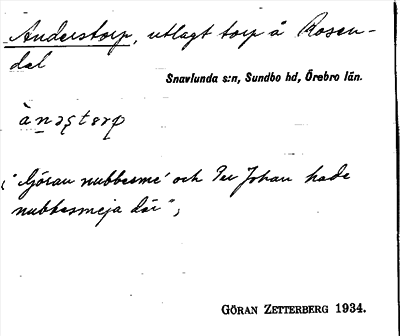 Anderstorp, utlagt torp å Rosen-
dal
Snavlunda s:n, Sundbo hd, Örebro län.
ànəʂtɒrp
"Göran nubbesme' och Per Johan hade
nubbesmeja där";
GÖRAN ZETTERBERG 1934.